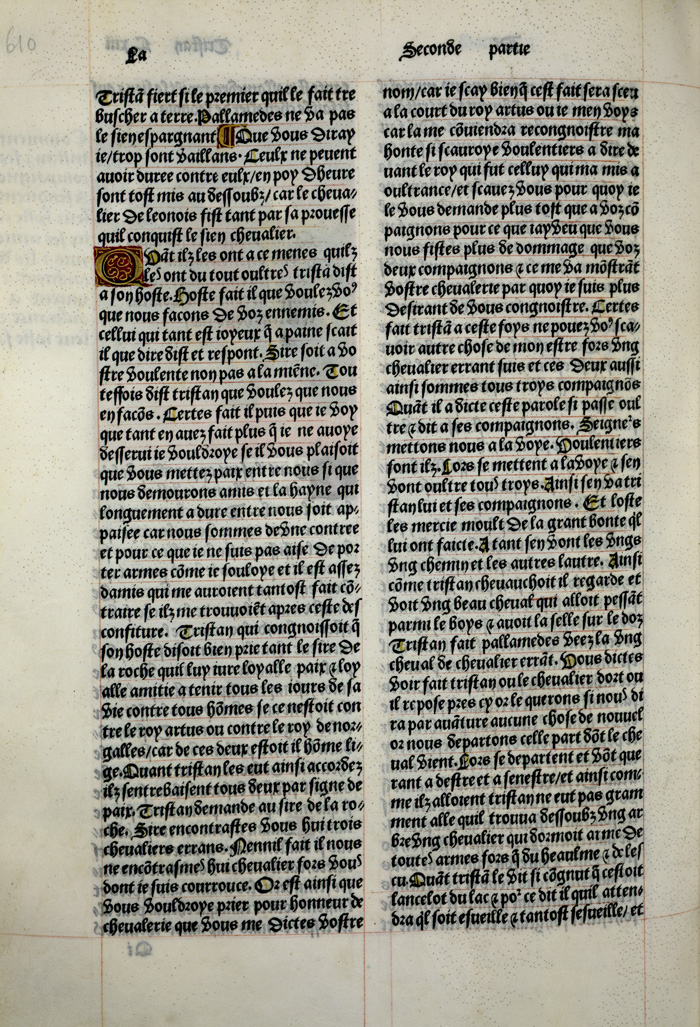 610
La
Seconde partie
Tristã fiert si le premier quil le fait tre
buscher a terre. Pallamedes ne va pas
le sien espargnant ¶ Que vous diray
ie/trop sont vaillans. Ceulx ne peuent
auoir duree contre eulx/en poy dheure
sont tost mis au dessoubz/car le cheua-
lier de leonois fist tant par sa prouesse
quil conquist le sien cheualier.
Quãt ilz les ont a ce menes quilz
les ont du tout oultres tristã dist
a son hoste. Hoste fait il que voulez vo9
que nous facons de voz ennemis. Et
cellui qui tant est ioyeux q̃ a paine scait
il que dire dist et respont. Sire soit a vo
stre voulente non pas a la miẽne. Tou
tesfois dist tristan que voulez que nous
en facõs. Certes fait il puis que ie voy
que tant en auez fait plus q̃ ie ne auoye
desserui ie vouldroye se il vous plaisoit
que vous mettez paix entre nous si que
nous demourons amis et la hayne qui
longuement a dure entre nous soit ap-
paisee car nous sommes devne contree
et pour ce que ie ne suis pas aise de por
ter armes cõme ie souloye et il est assez
damis qui me auroient tantost fait cõ-
traire se ilz me trouuoiẽt apres ceste des
confiture. Tristan qui congnoissoit q̃
son hoste disoit bien prie tant le sire de
la roche quil luy iure loyalle paix ⁊ loy
alle amitie a tenir tous les iours de sa
vie contre tous hõmes se ce nestoit con
tre le roy artus ou contre le roy de nor-
galles/car de ces deux estoit il hõme li-
ge. Quant tristan les eut ainsi accordez
ilz sentrebaisent tous deux par signe de
paix. Tristan demande au sire de la ro-
che. Sire encontrastes vous hui trois
cheualiers errans. Nennil fait il nous
ne encõtrasmes hui cheualier fors vous
dont ie suis courrouce. Or est ainsi que
vous vouldroye prier pour honneur de
cheualerie que vous me dictes vostre
nom/car ie scay bien q̃ cest fait sera sceu
a la court du roy artus ou ie men voys
car la me cõuiendra recongnoistre ma
honte si scauroye voulentiers a dire de
uant le roy qui fut celluy qui ma mis a
oultrance/et scauez vous pour quoy ie
le vous demande plus tost que a voz cõ
paignons pour ce que iay veu que vous
nous fistes plus de dommage que voz
deux compaignons ⁊ ce me va mõstrãt
vostre cheualerie par quoy ie suis plus
desirant de vous congnoistre. Certes
fait tristã a ceste foys ne pouez vo9 sca-
uoir autre chose de mon estre fors vng
cheualier errant suis et ces deux aussi
ainsi sommes tous troys compaignõs
Quãt il a dicte ceste parole si passe oul
tre ⁊ dit a ses compaignons. Seignrs
mettons nous a la voye. Voulentiers
font ilz. Lors se mettent a la voye ⁊ sen
vont oultre tous troys. Ainsi sen va tri
stan lui et ses compaignons. Et loste
les mercie moult de la grant bonte q̃l
lui ont faicte. A tant sen vont les vngs
vng chemin et les autres lautre. Ainsi
cõme tristan cheuauchoit il regarde et
voit vng beau cheual qui alloit pessãt
parmi le boys ⁊ auoit la selle sur le doz
Tristan fait pallamedes veez la vng
cheual de cheualier errãt. Vous dictes
voir fait tristan ou le cheualier dort ou
il repose pres cy or le querons si nous di
ra par auãture aucune chose de nouuel
or nous departons celle part dõt le che
ual vient. Lors se departent et võt que
rant a destre et a senestre/et ainsi com-
me ilz alloient tristan ne eut pas gram
ment alle quil trouua dessoubz vng ar
bre vng cheualier qui dormoit arme de
toutes armes fors q̃ du heaulme ⁊ de les
cu. Quãt tristã le vit si cõgnut q̃ cestoit
lancelot du lac ⁊ por ce dit il quil atten-
dra q̃l soit esueille ⁊ tantost sesueille/ et